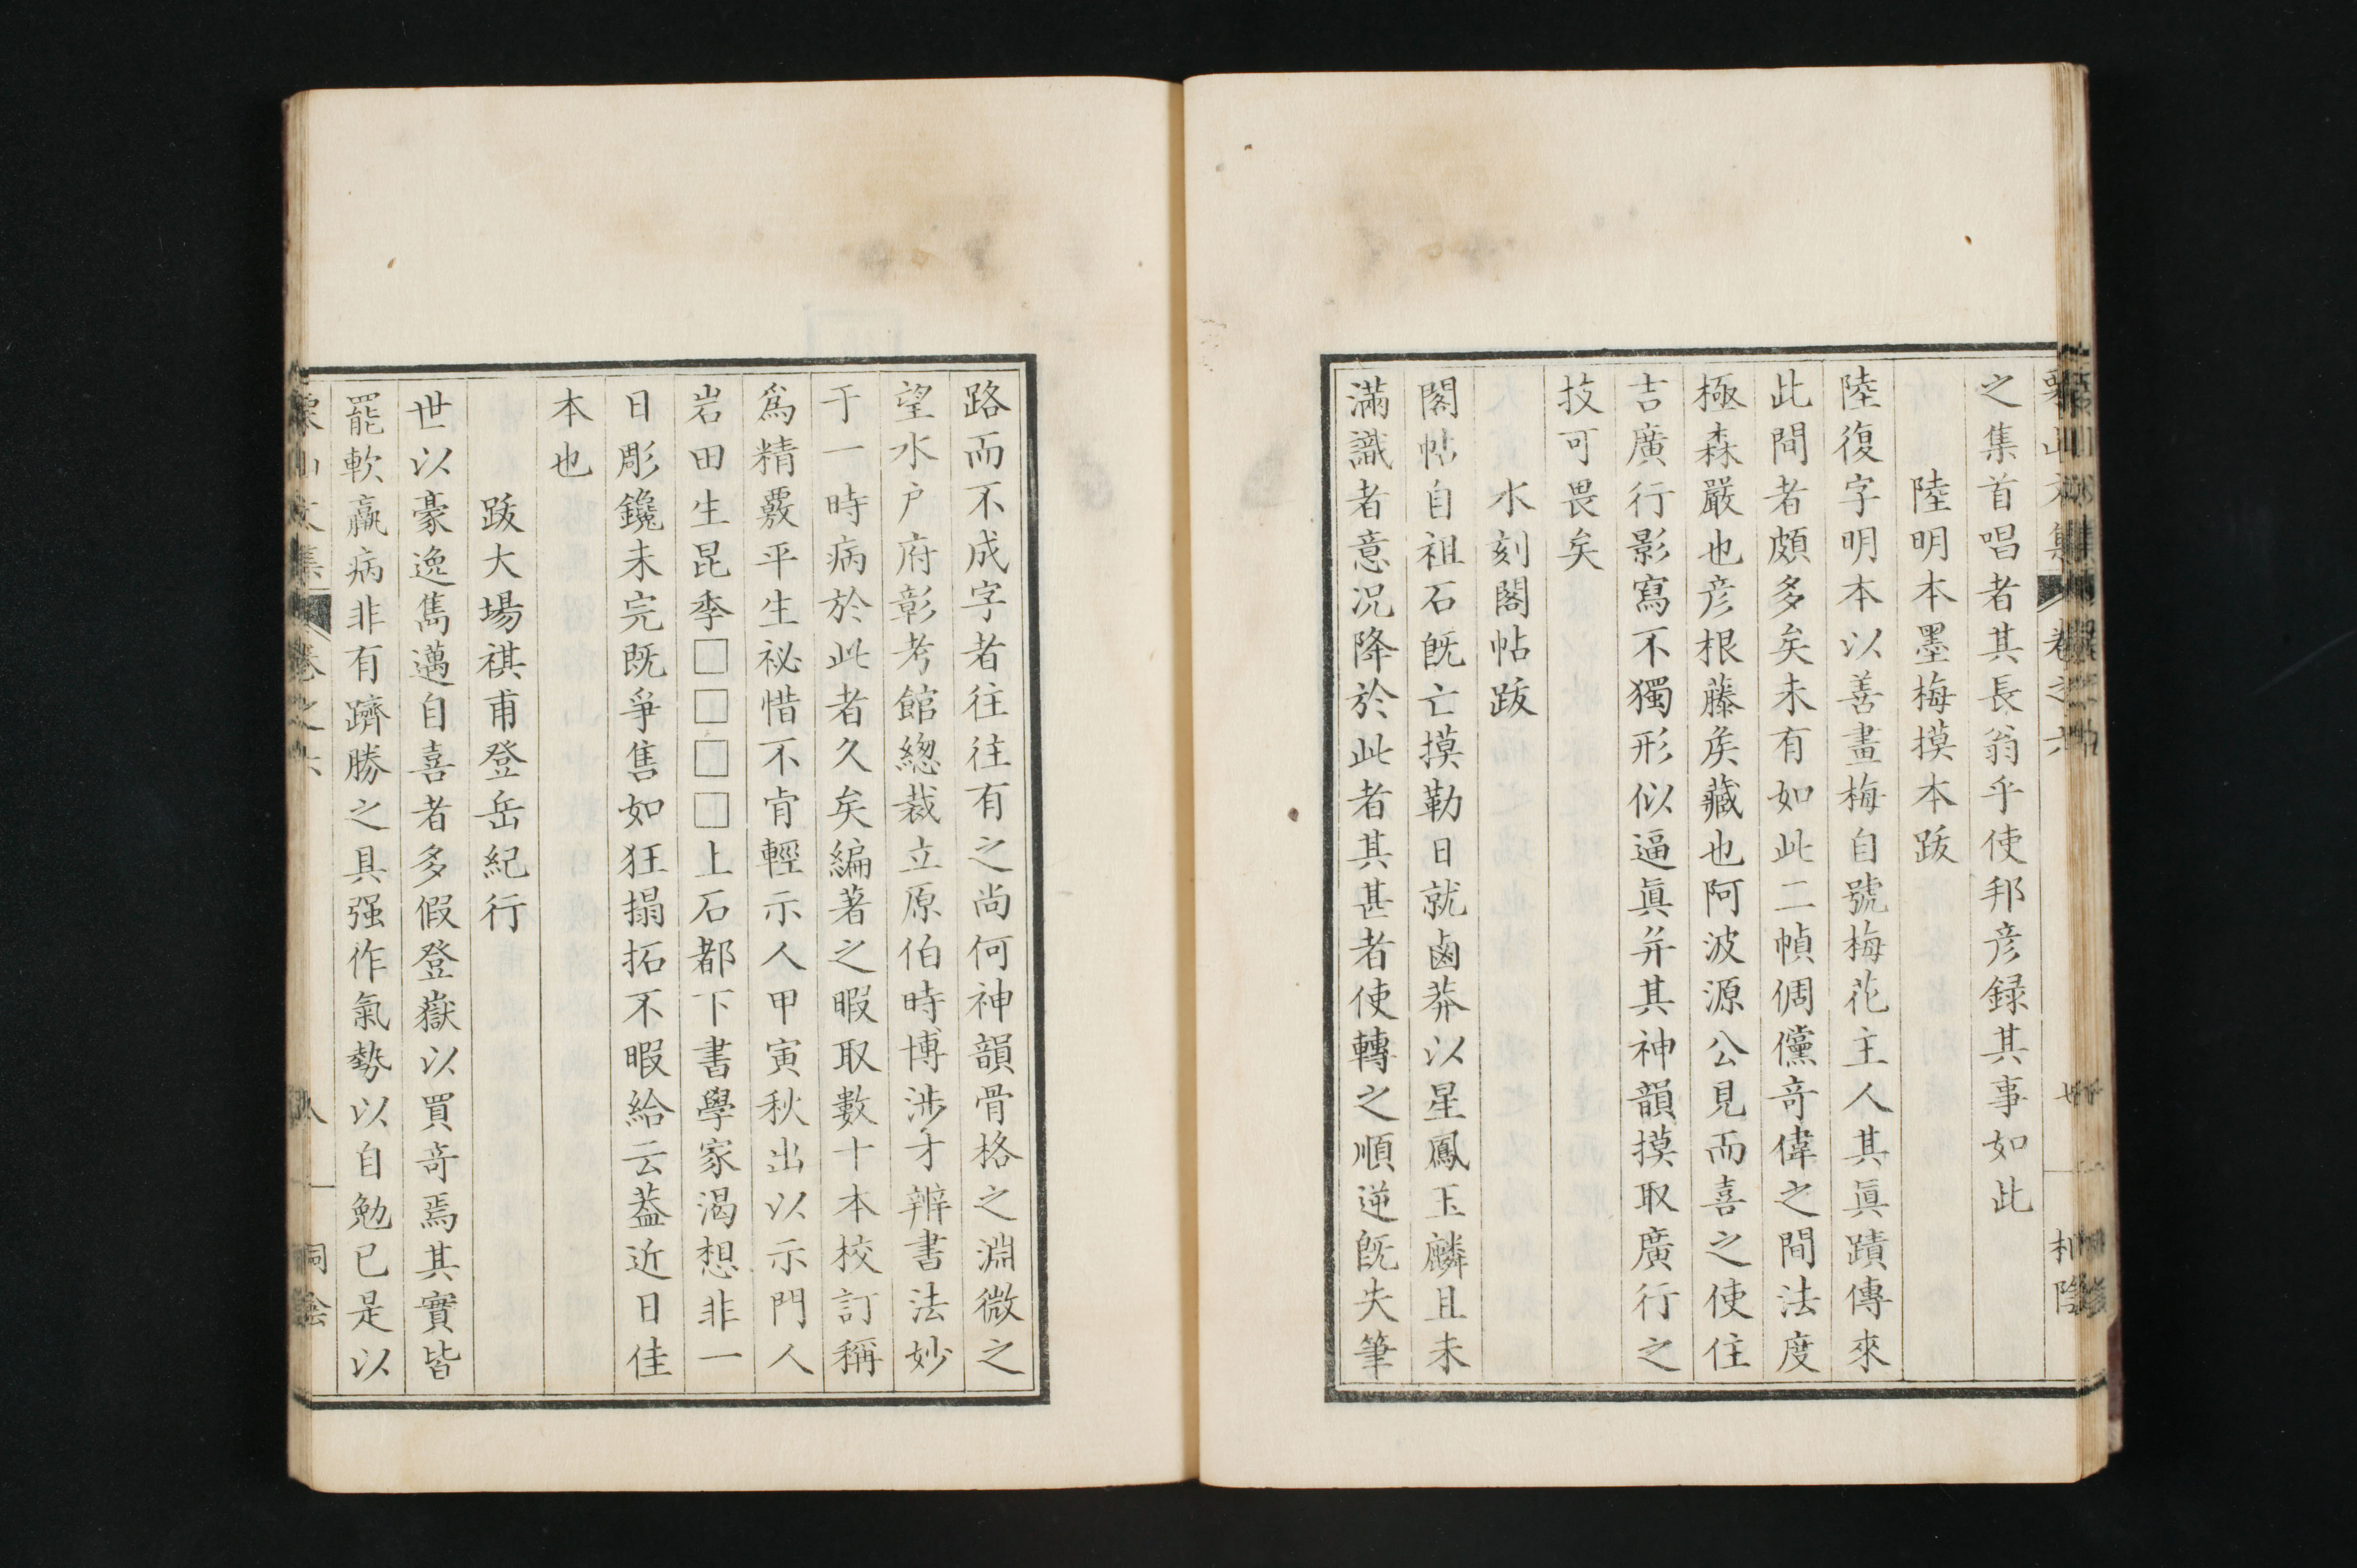 之集首唱者其長翁乎使邦彦録其事如此
陸明本墨梅摸本跋
陸復字明本以善畫梅自號梅花主人其眞蹟傳來
此間者頗多矣未有如此二幀倜儻奇偉之間法度
極森嚴也彦根藤矦藏也阿波源公見而喜之使住
吉廣行影寫不獨形似逼眞并其神韻摸取廣行之
技可畏矣
水刻閣帖跋
閣帖自祖石既亡摸勒日就鹵莽以星鳳玉麟且未
滿識者意况降於此者其甚者使轉之順逆既失筆
路而不成字者往往有之尚何神韻骨格之淵微之
望水户府彰考館緫裁立原伯時博涉才辨書法妙
于一時病於此者久矣編著之暇取數十本校訂稱
爲精覈平生祕惜不肯輕示人甲寅秋出以示門人
岩田生昆季□□□□上石都下書學家渴想非一
日彫鑱未完既爭售如狂搨拓不暇給云葢近日佳
本也
跋大場祺甫登岳紀行
世以豪逸雋邁自喜者多假登嶽以買奇焉其實皆
罷軟羸病非有躋勝之具强作氣勢以自勉已是以